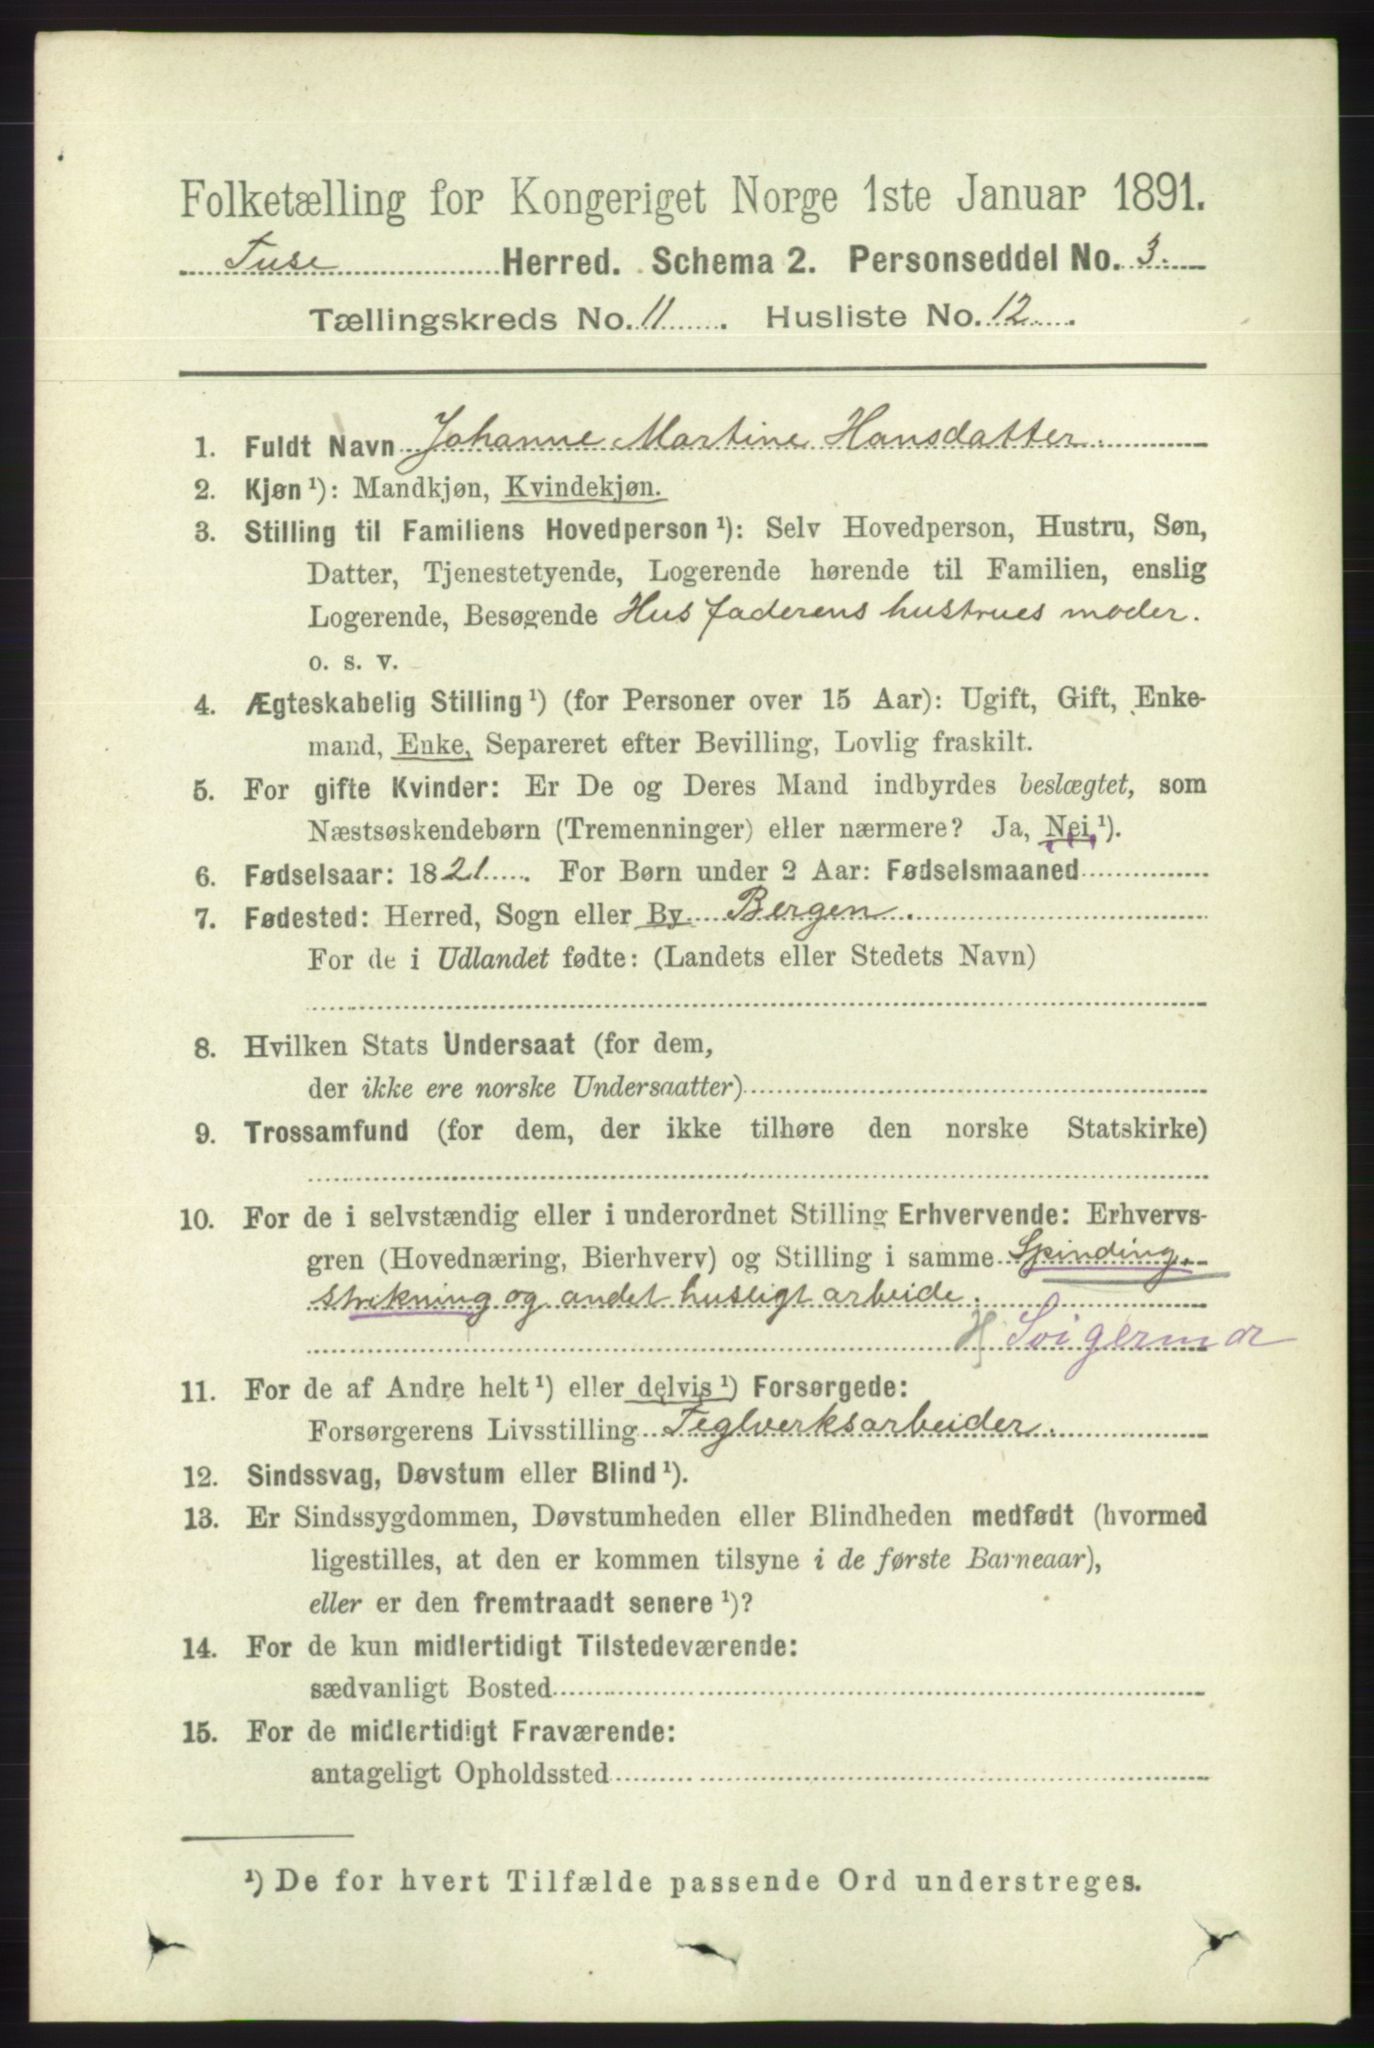 Folketælling for Kongeriget Norge 1ste Januar 1891.
Fuse Herred. Schema 2. Personseddel No. 3.
Tællingskreds No. 11. Husliste No. 12.
1. Fuldt Navn Johanne Martine Hansdatter.
2. Kjøn ¹): Mandkjøn, Kvindekjøn.
3. Stilling til Familiens Hovedperson ¹): Selv Hovedperson, Hustru, Søn,
Datter, Tjenestetyende, Logerende hørende til Familien, enslig
Logerende, Besøgende Husfaderens hustrues moder.
o. s. v.
4. Ægteskabelig Stilling ¹) (for Personer over 15 Aar): Ugift, Gift, Enke-
mand, Enke, Separeret efter Bevilling, Lovlig fraskilt.
5. For gifte Kvinder: Er De og Deres Mand indbyrdes beslægtet, som
Næstsøskendebørn (Tremenninger) eller nærmere? Ja, Nei ¹).
6. Fødselsaar: 1821. For Børn under 2 Aar: Fødselsmaaned
7. Fødested: Herred, Sogn eller By Bergen.
For de i Udlandet fødte: (Landets eller Stedets Navn)
8. Hvilken Stats Undersaat (for dem,
der ikke ere norske Undersaatter)
9. Trossamfund (for dem, der ikke tilhøre den norske Statskirke)
10. For de i selvstændig eller i underordnet Stilling Erhvervende: Erhvervs-
gren (Hovednæring, Bierhverv) og Stilling i samme Spinding,
strikning og andet husligt arbeide.
H Svigermor
11. For de af Andre helt ¹) eller delvis ¹) Forsørgede:
Forsørgerens Livsstilling Teglverksarbeider.
12. Sindssvag, Døvstum eller Blind ¹).
13. Er Sindssygdommen, Døvstumheden eller Blindheden medfødt (hvormed
ligestilles, at den er kommen tilsyne i de første Barneaar),
eller er den fremtraadt senere ¹)?
14. For de kun midlertidigt Tilstedeværende:
sædvanligt Bosted
15. For de midlertidigt Fraværende:
antageligt Opholdssted
¹) De for hvert Tilfælde passende Ord understreges.